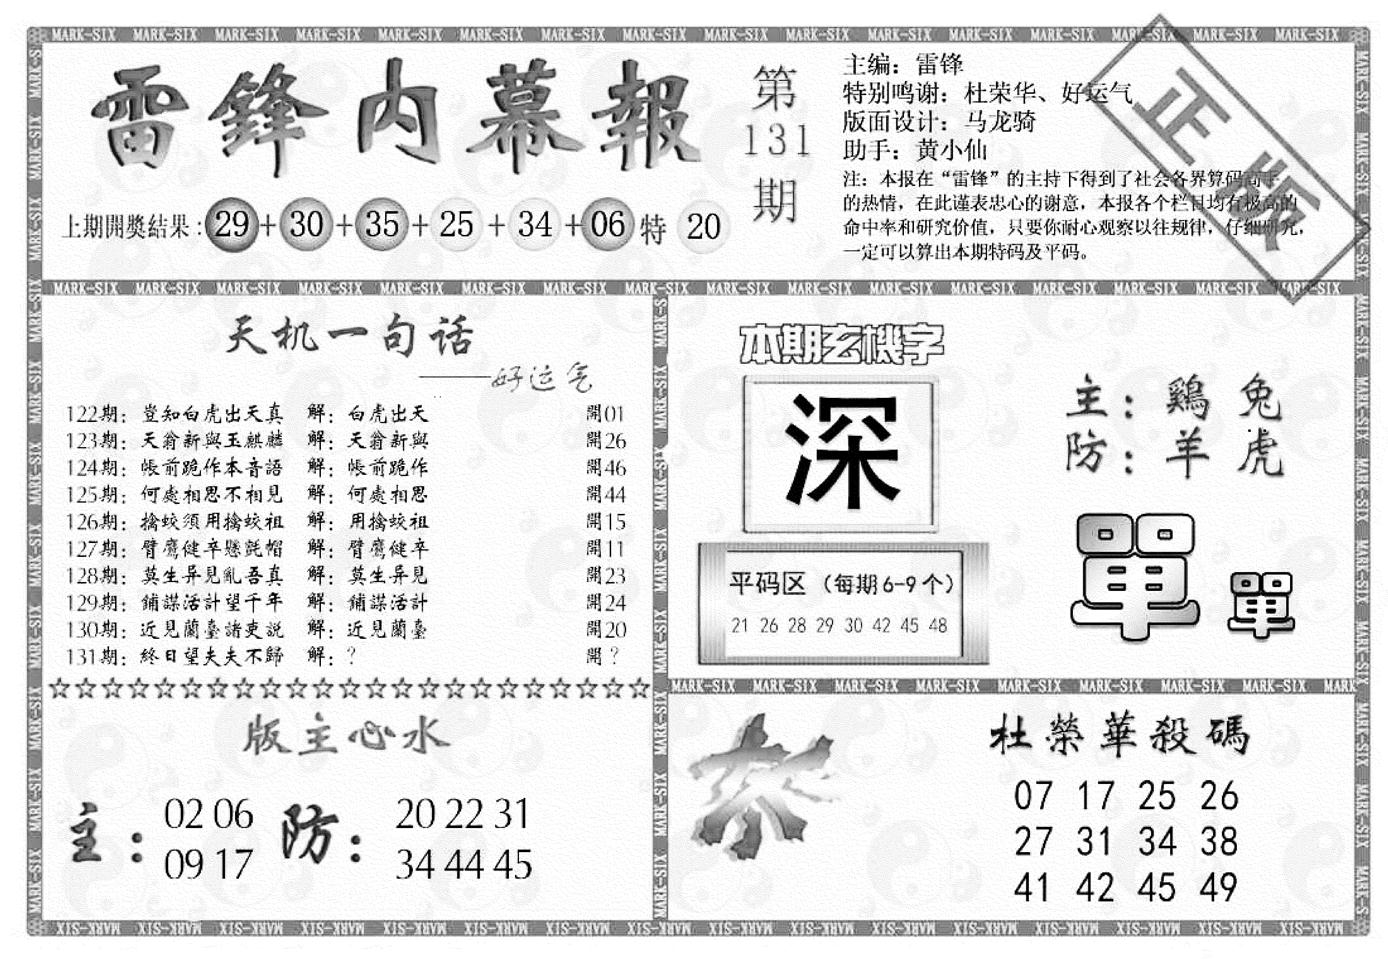 MARK-SIX MARK-SIX MARK-SIX MARK-SIX MARK-SIX MARK-SIX MARK-SIX MARK-SIX MARK-SIX MARK-SIX MARK-SIX MARK-SIX MARK-SIX MARK-SIX MARK-SIX MARK-SIX
雷鋒内幕報
第
131
期
主编：雷锋
特别鸣谢：杜荣华、好运气
版面设计：马龙骑
助手：黄小仙
注：本报在“雷锋”的主持下得到了社会各界算码高手
的热情，在此谨表忠心的谢意，本报各个栏目均有极高的
命中率和研究价值，只要你耐心观察以往规律，仔细研究，
一定可以算出本期特码及平码。
正版
上期開獎結果：29+30+35+25+34+06特 20
MARK-SIX MARK-SIX MARK-SIX MARK-SIX MARK-SIX MARK-SIX MARK-SIX MARK-SIX MARK-SIX MARK-SIX MARK-SIX MARK-SIX MARK-SIX MARK-SIX MARK-SIX MARK-SIX
天机一句话
——好运气
122期：豈知白虎出天真 解：白虎出天 開01
123期：天翁新與玉麒麟 解：天翁新與 開26
124期：帳前跪作本音語 解：帳前跪作 開46
125期：何處相思不相見 解：何處相思 開44
126期：擒蛟須用擒蛟祖 解：用擒蛟祖 開15
127期：臂鷹健卒懸氈帽 解：臂鷹健卒 開11
128期：莫生异見亂吾真 解：莫生异見 開23
129期：鋪謀活計望千年 解：鋪謀活計 開24
130期：近見蘭臺諸吏說 解：近見蘭臺 開20
131期：終日望夫夫不歸 解：？ 開？
☆☆☆☆☆☆☆☆☆☆☆☆☆☆☆☆☆☆☆☆☆☆☆
本期玄機字
深
主：鷄 兔
防：羊 虎
單 單
平码区（每期6-9个）
21 26 28 29 30 42 45 48
MARK-SIX MARK-SIX MARK-SIX MARK-SIX MARK-SIX MARK-SIX MARK-SIX MARK-SIX MARK
版主心水
主：
02 06
09 17
防：
20 22 31
34 44 45
杀
杜榮華殺碼
07 17 25 26
27 31 34 38
41 42 45 49
MARK-SIX MARK-SIX MARK-SIX MARK-SIX MARK-SIX MARK-SIX MARK-SIX MARK-SIX MARK-SIX MARK-SIX MARK-SIX MARK-SIX MARK-SIX MARK-SIX MARK-SIX MARK-SIX